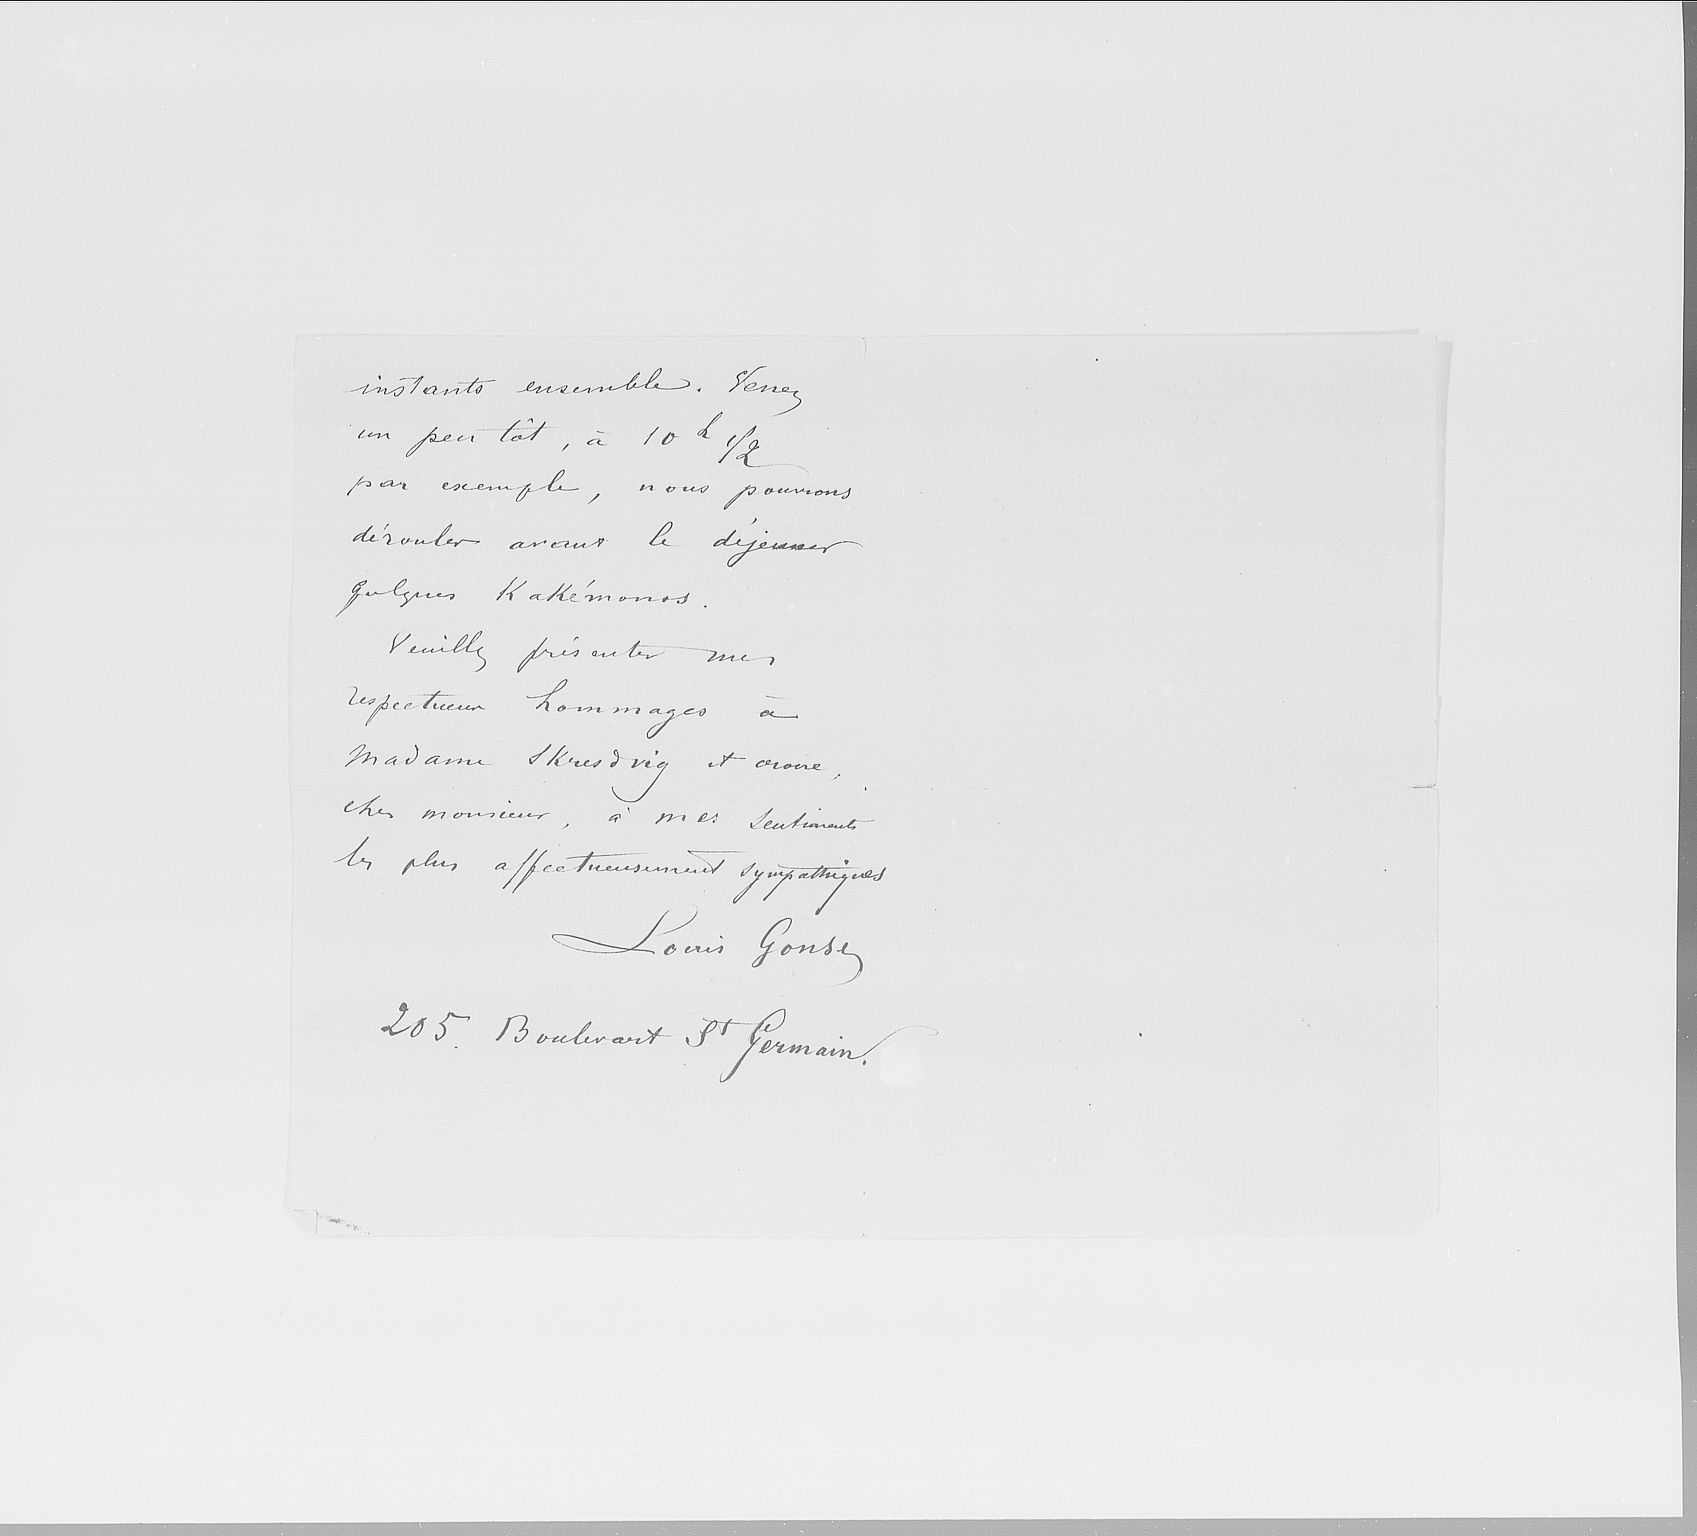 instants ensemble. Venez
un peu tôt, à 10 h 1/2
par exemple, nous pourrons
dérouler avant le déjeuner
quelques Kakémonos.
Veuillez présenter mes
respectueux hommages à
Madame Skresdvig et croire,
cher monsieur, à mes sentiments
les plus affectueusement sympathiques
Louis Gonse
205. Boulevart St Germain.